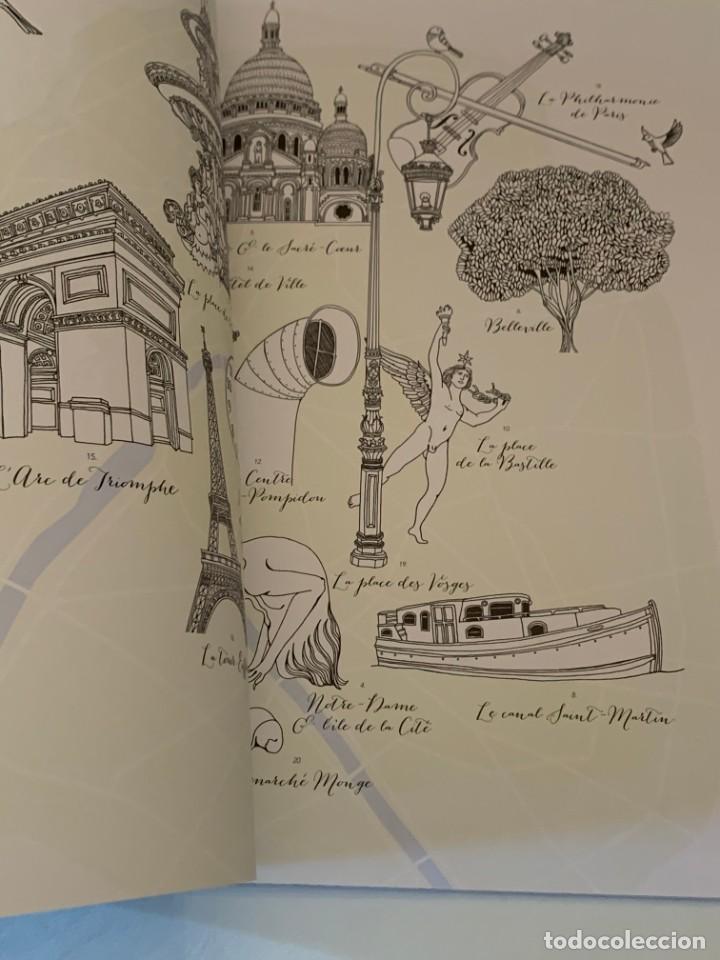 15.
L'Arc de Triomphe
La place
5.
& le Sacré-Cœur
14.
de Ville
La Philharmonie
de Paris
6.
Belleville
12.
Centre
-Pompidou
10.
La place
de la Bastille
19.
La place des Vosges
La tour
4.
Notre-Dame
& l'île de la Cité
8.
Le canal Saint-Martin
20
marché Monge
todocoleccion
todocoleccion.net